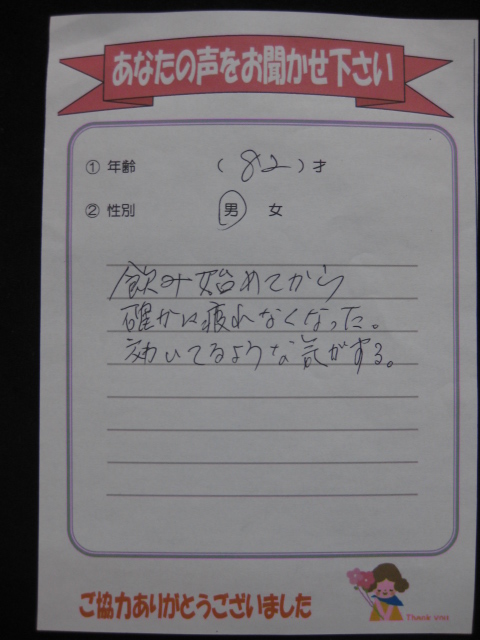 あなたの声をお聞かせ下さい
① 年齢 (82)才
② 性別 男 女
飲み始めてから
確かに疲れなくなった。
効いてるような気がする。
ご協力ありがとうございました
Thank you